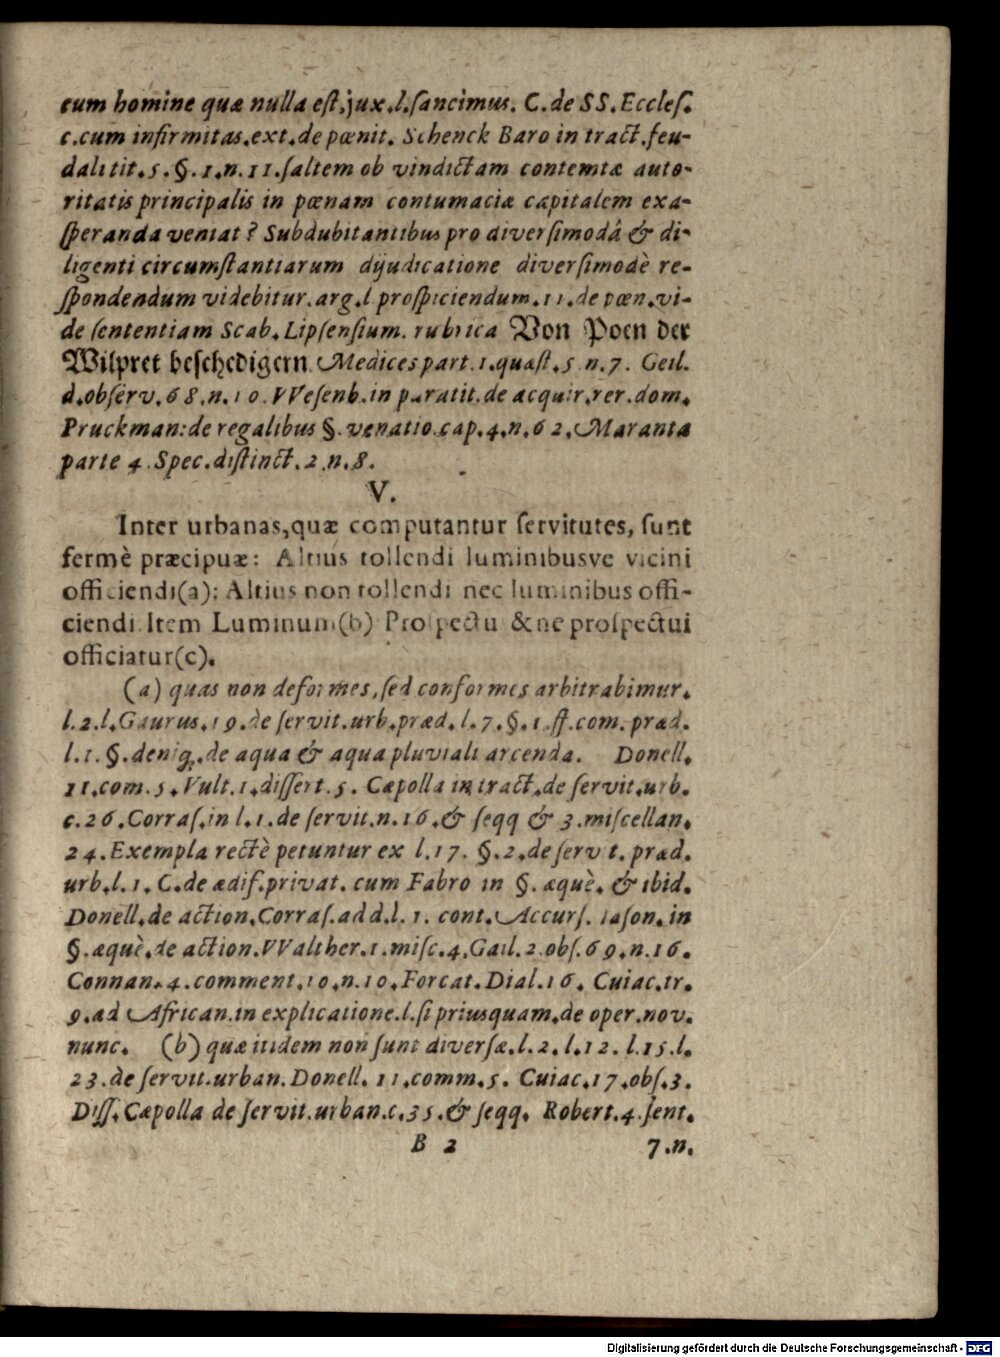 cum homine quæ nulla est, jux.l.sancimus. C. de SS. Ecclef.
c.cum infirmitas.ext.de pœnit. Schenck Baro in tract.feu-
dali tit.5.§.1.n.11.ſaltem ob vindictam contemtæ auto-
ritatis principalis in pœnam contumaciæ capitalem exa-
ſperanda veniat? Subdubitantibus pro diverſimodâ & di-
ligenti circumſtantiarum dijudicatione diverſimodè re-
ſpondendum videbitur.arg.l proſpiciendum.11.de pœn.vi-
de ſententiam Scab.Lipſenſium. rubrica Von Poen der
Wilpret beſchedigern. Medices part.1.quæſt.5 n.7. Geil.
d.obſerv.68.n.10.VVeſenb.in paratit.de acquir.rer.dom.
Pruckman:de regalibus §. venatio.cap.4.n.62.Maranta
parte 4.Spec.diſtinct.2.n.8.
V.
Inter urbanas,quæ computantur ſervitutes, ſunt
fermè præcipuæ: Altius tollendi luminibusve vicini
officiendi(a): Altius non tollendi nec luminibus offi-
ciendi.Item Luminum(b) Proſpectu & ne proſpectui
officiatur(c).
(a) quas non deformes,ſed conformes arbitrabimur.
l.2.l.Gaurus.19.de ſervit.urb.præd.l.7.§.1.ff.com.præd.
l.1.§.deniq.de aqua & aqua pluviali arcenda. Donell.
11.com.5.Vult.1.diſſert.5. Cæpolla in tract.de ſervit.urb.
c.26.Corraſ.in l.1.de ſervit.n.16.& ſeqq & 3.miſcellan.
24.Exempla rectè petuntur ex l.17. §.2.de ſervit.præd.
urb.l.1. C.de ædif.privat. cum Fabro in §. æquè. & ibid.
Donell.de action.Corraſ.ad d.l.1. cont.Accurſ. Iaſon.in
§.æquè.de action.VValther.1.miſc.4.Gail.2.obſ.69.n.16.
Connan.4.comment.10.n.10.Forcat.Dial.16. Cuiac.tr.
9.ad African.in explicatione.l.ſi priusquam.de oper.nov.
nunc. (b) quæ itidem non ſunt diverſæ.l.2.l.12. l.15.l.
23.de ſervit.urban.Donell.11.comm.5. Cuiac.17.obſ.3.
Diſſ.Cæpolla de ſervit.urban.c.35.& ſeqq. Robert.4.ſent.
B 2 7.n.
Digitalisierung gefördert durch die Deutsche Forschungsgemeinschaft - DFG